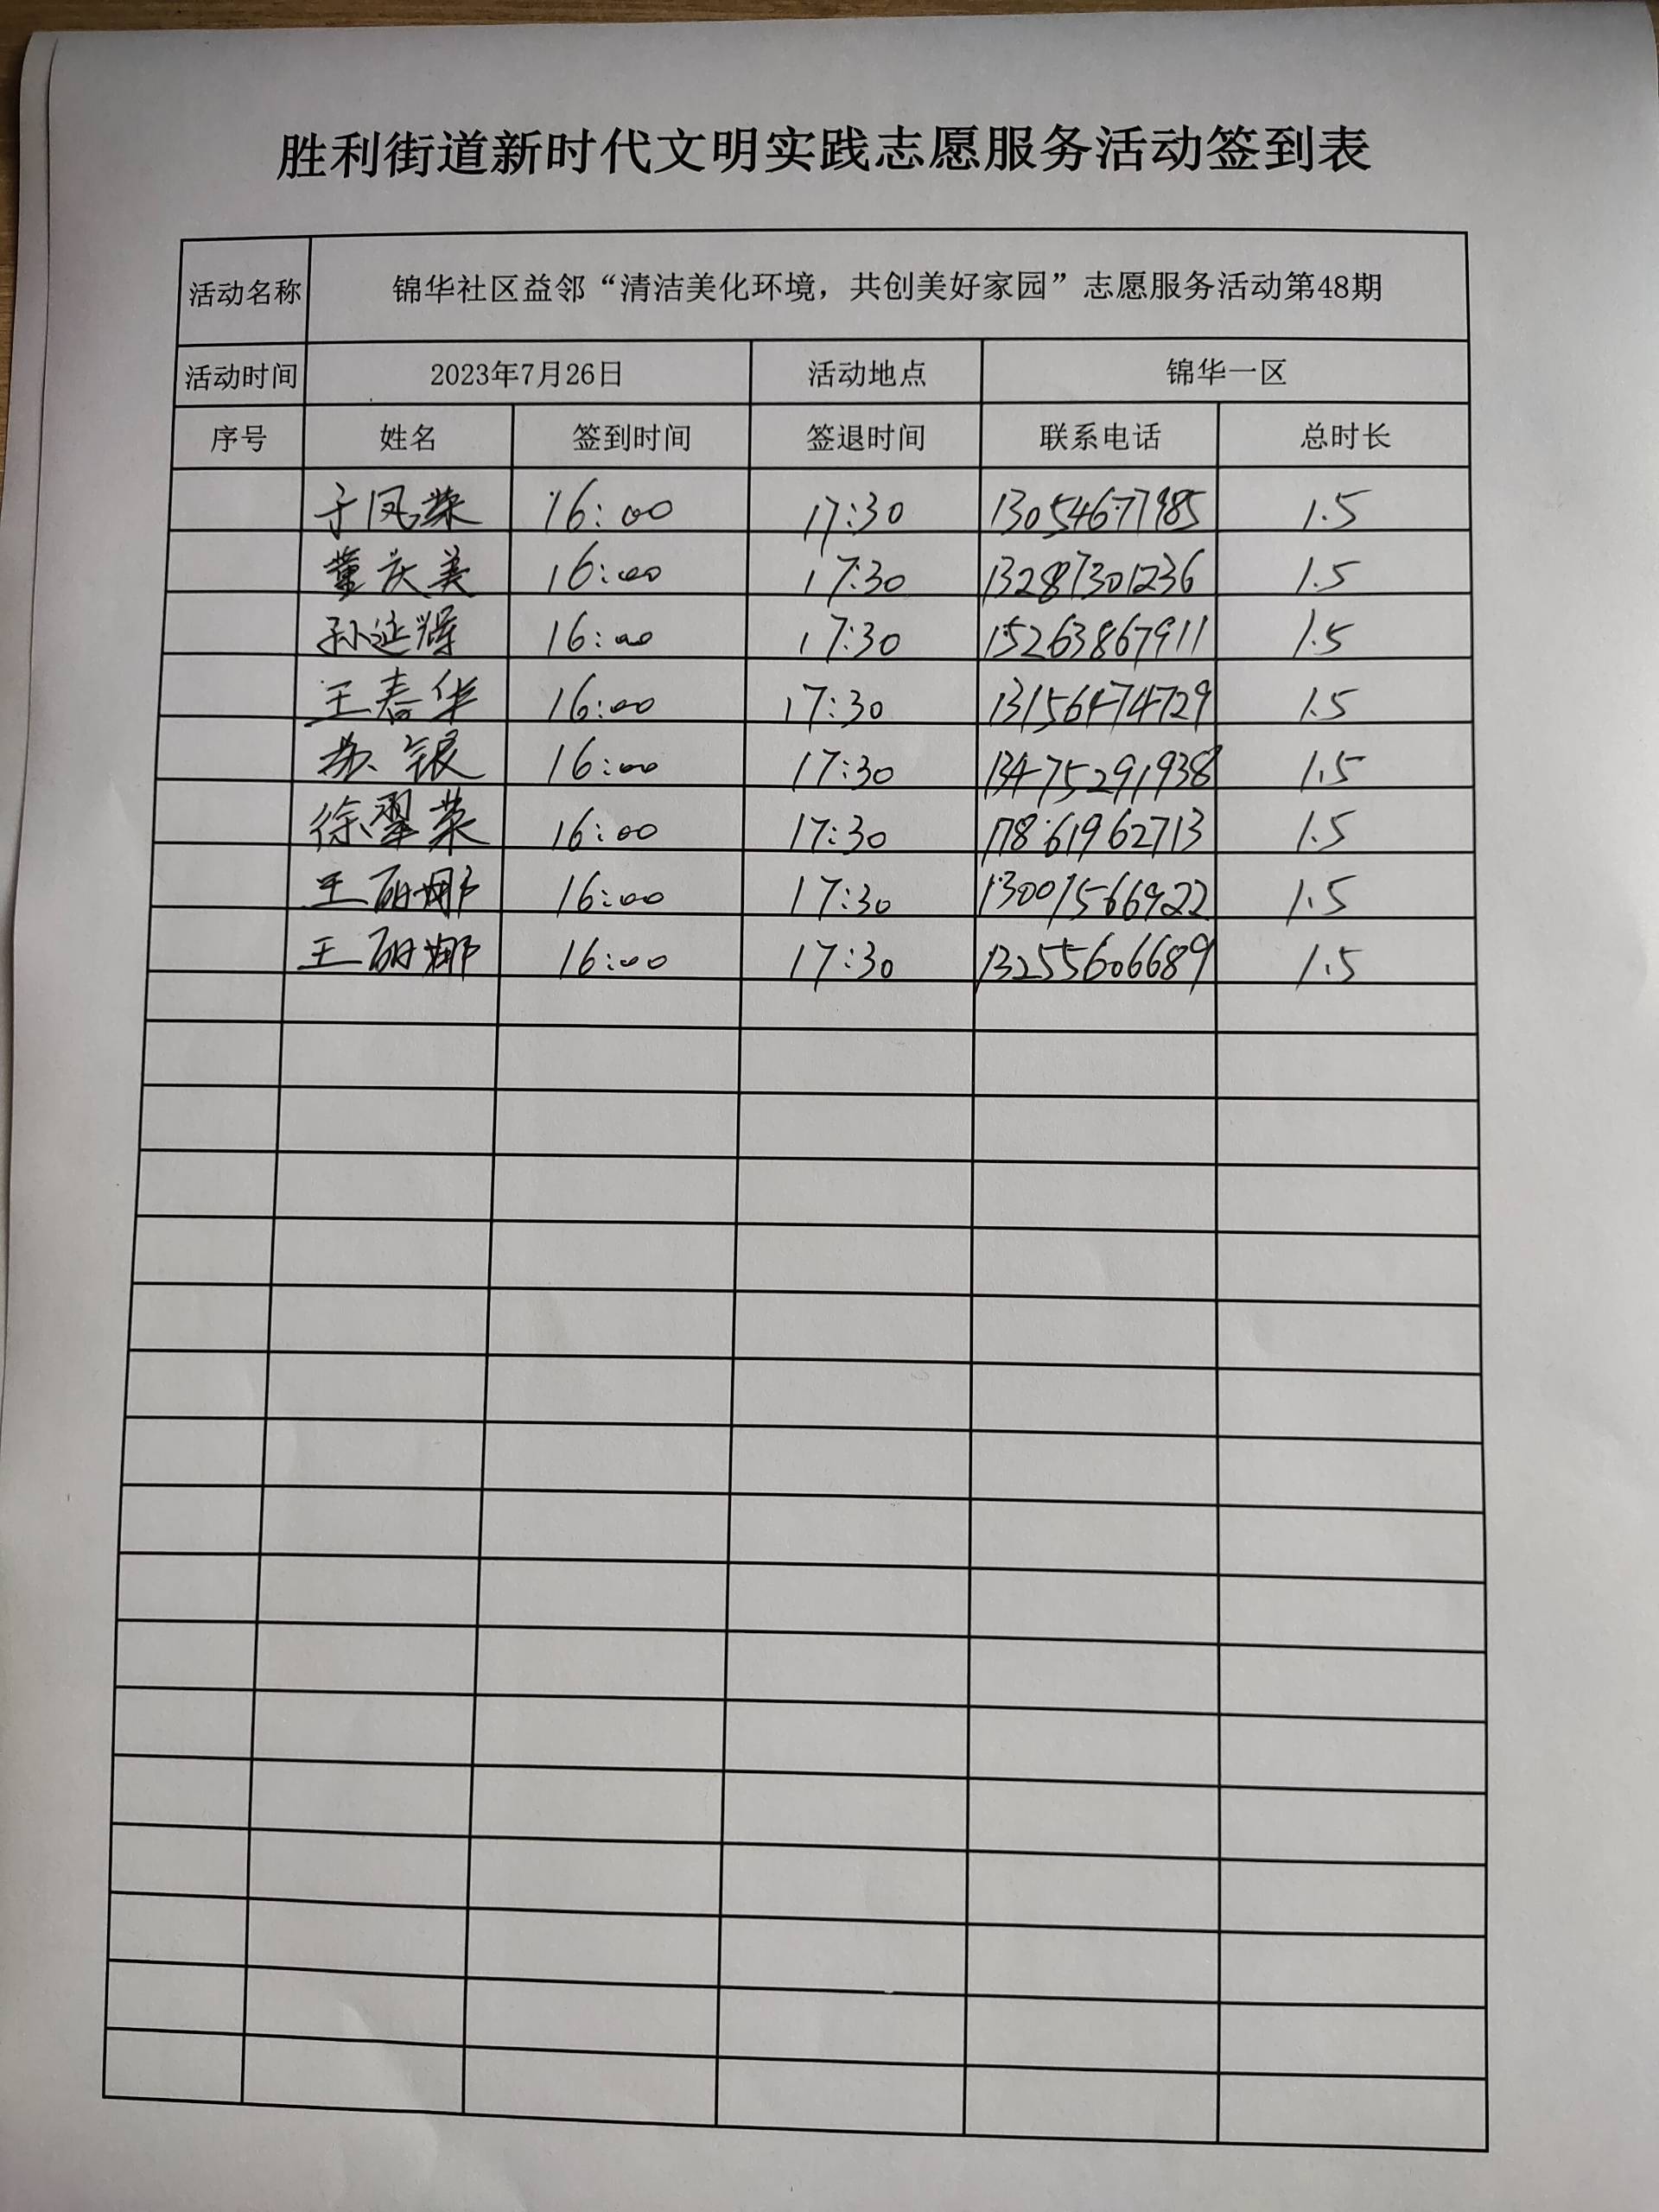 胜利街道新时代文明实践志愿服务活动签到表
活动名称 锦华社区益邻“清洁美化环境，共创美好家园”志愿服务活动第48期
活动时间 2023年7月26日 活动地点 锦华一区
序号 姓名 签到时间 签退时间 联系电话 总时长
于凤荣 16:00 17:30 13054677985 1.5
董庆美 16:00 17:30 13287301236 1.5
孙延辉 16:00 17:30 15263867911 1.5
王春华 16:00 17:30 13156474729 1.5
苏银 16:00 17:30 13475291938 1.5
徐翠荣 16:00 17:30 17861962713 1.5
王丽娜 16:00 17:30 13001566922 1.5
王丽娜 16:00 17:30 13255606689 1.5